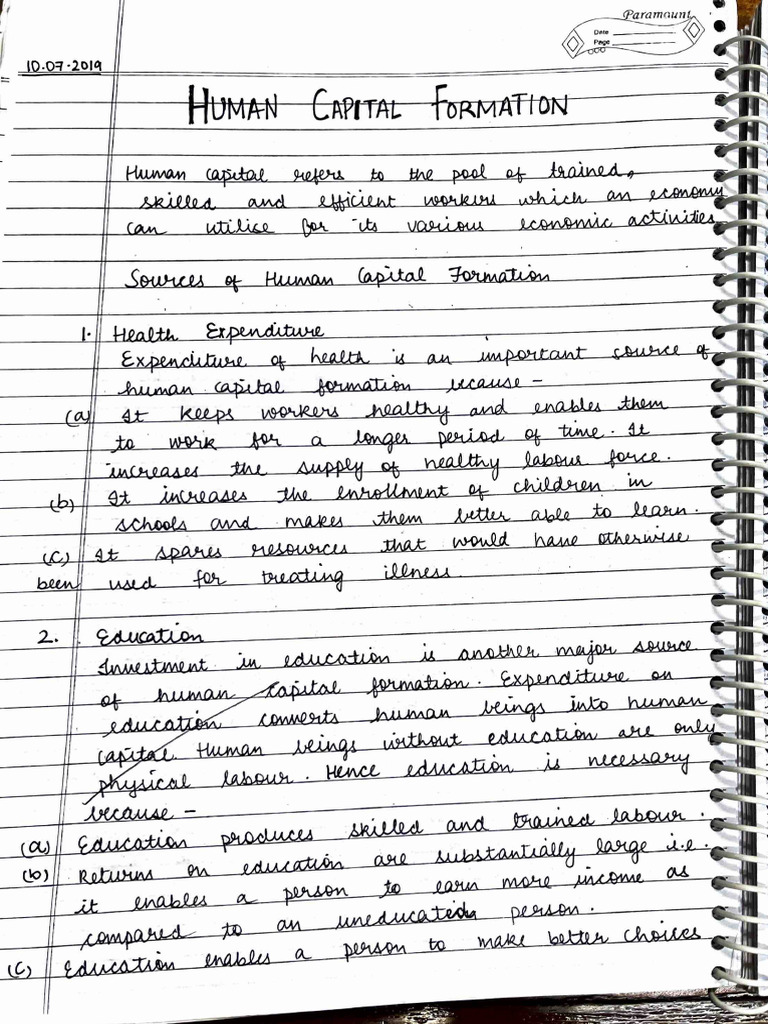 Paramount
Date
Page
10.07.2019
HUMAN CAPITAL FORMATION
Human capital refers to the pool of trained,
skilled and efficient workers which an economy
can utilise for its various economic activities
Sources of Human Capital Formation
1. Health Expenditure
Expenditure of health is an important source of
human capital formation because -
(a) It keeps workers healthy and enables them
to work for a longer period of time. It
increases the supply of healthy labour force.
(b) It increases the enrollment of children in
schools and makes them better able to learn.
(c) It spares resources that would have otherwise
been used for treating illness.
2. Education
Investment in education is another major source
of human capital formation. Expenditure on
education converts human beings into human
capital. Human beings without education are only
physical labour. Hence education is necessary
because -
(a) Education produces skilled and trained labour.
(b) Returns on education are substantially large i.e.
it enables a person to earn more income as
compared to an uneducated person.
(c) Education enables a person to make better choices